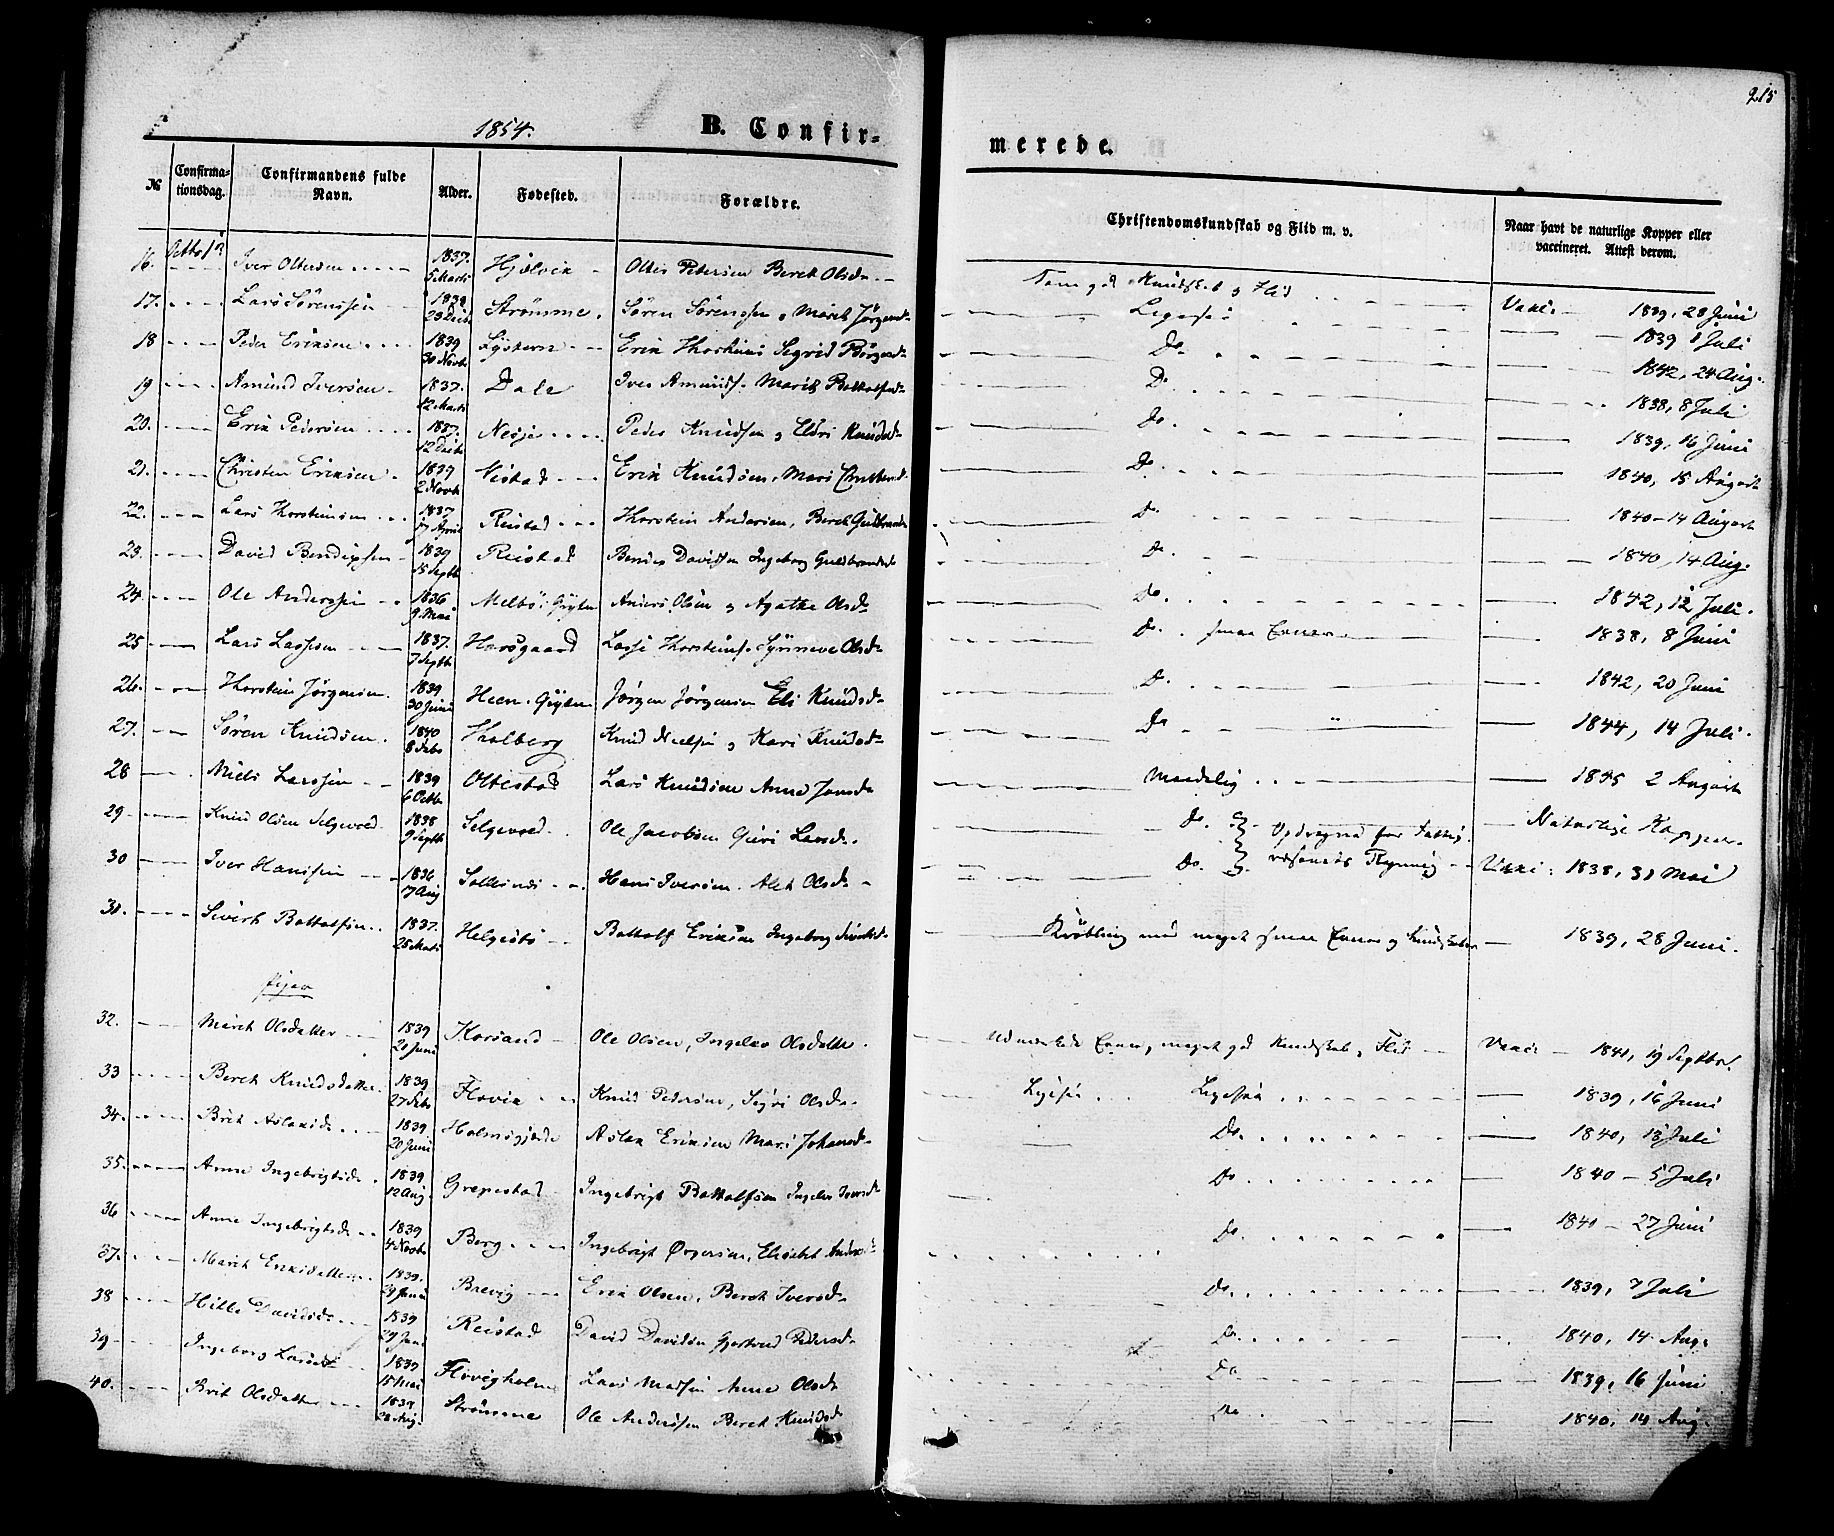 215
1854.
B. Confir-
merede.
№
Confirma-
tionsdag.
Confirmandens fulde
Navn.
Alder.
Fødested.
Forældre.
Christendomskundskab og Flid m. v.
Naar havt de naturlige Kopper eller
vaccineret. Attest derom.
16. Octbr 1ste Iver Ottesen 1837. 5 Marts Hjelvik Otte Petersen Beret Olsd. Tem. god Kundskab og Flid Vacc. 1839, 28 Juni
17. Lars Sørenssen 1839 23 Decbr Strømme Søren Sørenssen, Marit Jørgensd. Ligesaa 1839 1 Juli
18 Peder Eriksen 1839 30 Novbr Erik Thorsteins Segrid Do. 1842, 24 Aug.
19 Amund Iversen 1837. 12 Marts Dale Iver Amunds. Marit Bottolfsd. Do. 1838, 8 Juli
20. Erik Pedersen 1837. 12 Decbr Nesje Peder Knudsen og Eldri Knudsd. Do. 1839, 16 Juni
21. Christen Eriksen 1837 2 Novbr Nistad Erik Knudsen, Mari Christensd. Do. 1840, 15 August
22. Lars Thorsteinsen 1837 17 April Reistad Thorstein Andersen, Beret Guldbrands Do. 1840 - 14 August
23. David Bendixsen 1839 15 Septbr Reistad Bendix Davidsen Ingeborg Guldbrandsd. Do. 1840, 14 Aug.
24. Ole Anderssen 1836 9 Mai Melbø, Grytten Anders Olsen og Agathe Olsd. Do. 1842, 12 Juli.
25 Lars Lassesen 1837. 7 Septbr Horsgaard Lasse Thorsteins. Synneve Olsd. Do. smaa Evner. 1838, 8 Juni
26. Thorstein Jørgensen. 1839 30 Juni Heen. Grytten Jørgen Jørgensen Eli Knudsd. Do. 1842, 20 Juni
27. Søren Knudsen. 1840 8 Febr Tholberg Knud Nielsen og Kari Knudsd. Do. 1844, 14 Juli.
28 Niels Larssen 1839 6 Octbr Oltestad Lars Knudsen Anne Jonsd. Maadelig 1845 2 August
29. Knud Olsen Selgevold. 1838 9 Septbr Selgevold. Ole Jacobsen Guri Larsd. Do. Opdragne for Fattig- Naturlige Kopper.
30 Iver Hanssen 1836 7 Aug Hans Iversen. Alet Olsd. Do. væsenets Regning Vacc: 1838, 31 Mai
31. Sivert Bottolfsen 1837. 25 Marts Helgestø Bottolf Eriksen Ingeborg Sivertsd. Krøbling med meget smaa Evner og Kundskaber 1839, 28 Juni.
Piger
32. Marit Olsdatter 1839 20 Juni Korsand Ole Olsen, Ingelev Olsdatter. Udmærkede Evner, meget god Kundskab, Flid Vacc. 1840, 19 Septbr.
33 Beret Knudsdatter. 1839 27 Febr Flovik Knud Pedersen, Sigri Olsd. Ligesaa Ligesaa 1839, 16 Juni
34. Brit Aslaksd. 1839 20 Juni Holmsgjerde Aslak Eriksen Mari Johansd. Do. 1840, 13 Juli
35. Anne Ingebrigtsd. 1839 12 Aug. Grepestad Ingebrigt Bottolfsen Ingelev Iversd. Do. 1840 - 5 Juli
36 Anne Ingebrigtsd. 1839 4 Novbr Berg Ingebrigt Ørgersen, Elisabet Andersd. Do. 1840 - 27 Juni
37. Marit Eriksdatter. 1839. 29 Juni Brevig Erik Olsen, Beret Iversd. Do. 1839, 7 Juli
38 Hille Davidsd. 1839 29 Juni Reistad David Davidsen Gjertrud Pedersd. Do. 1840, 14 Aug.
39 Ingeborg Larsd. 1839 15 Mai Flovigholm Lars Madsen Anne Olsd. Do. 1839, 16 Juni
40. Brit Olsdatter 1839 28 Aug. Strømme Ole Anderssen Beret Knudsd. Do. 1840, 14 Aug.